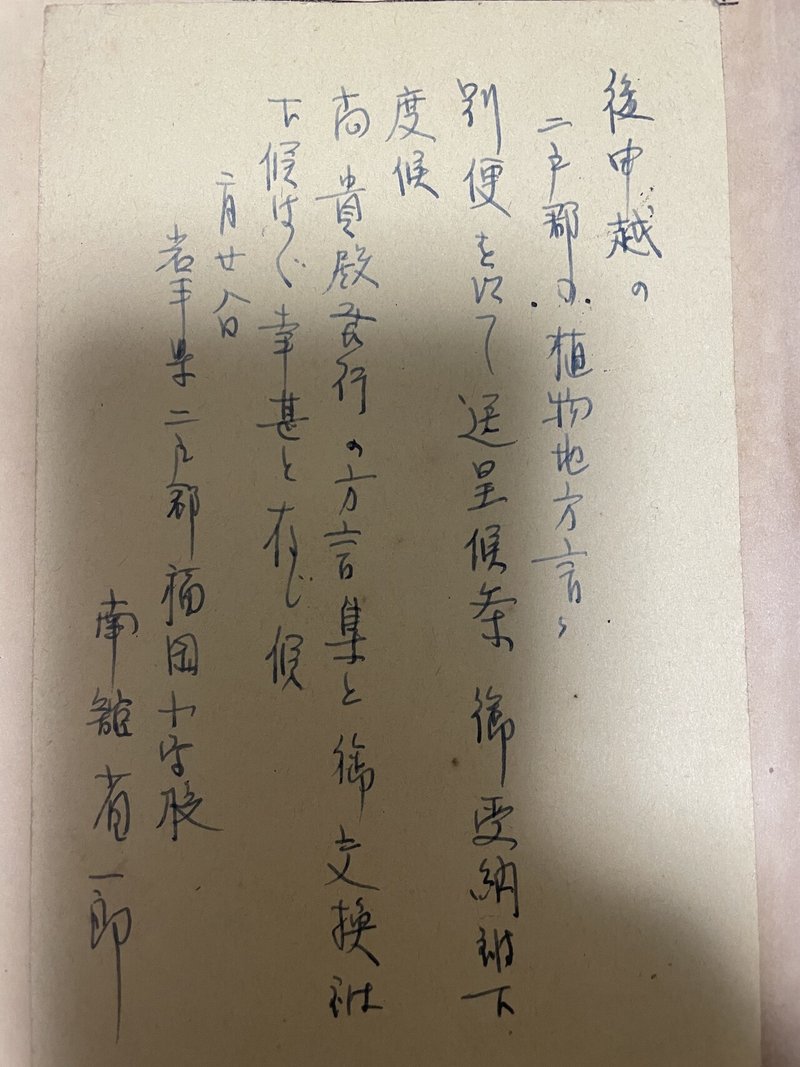 後申越の
二戸郡の植物地方言
別便を以て送呈候条 御受納被下
度候
尚貴殿発行の方言集と御交換被
下候はゞ幸甚と存じ候
二月廿八日
岩手県二戸郡福岡小学校
南舘省一郎